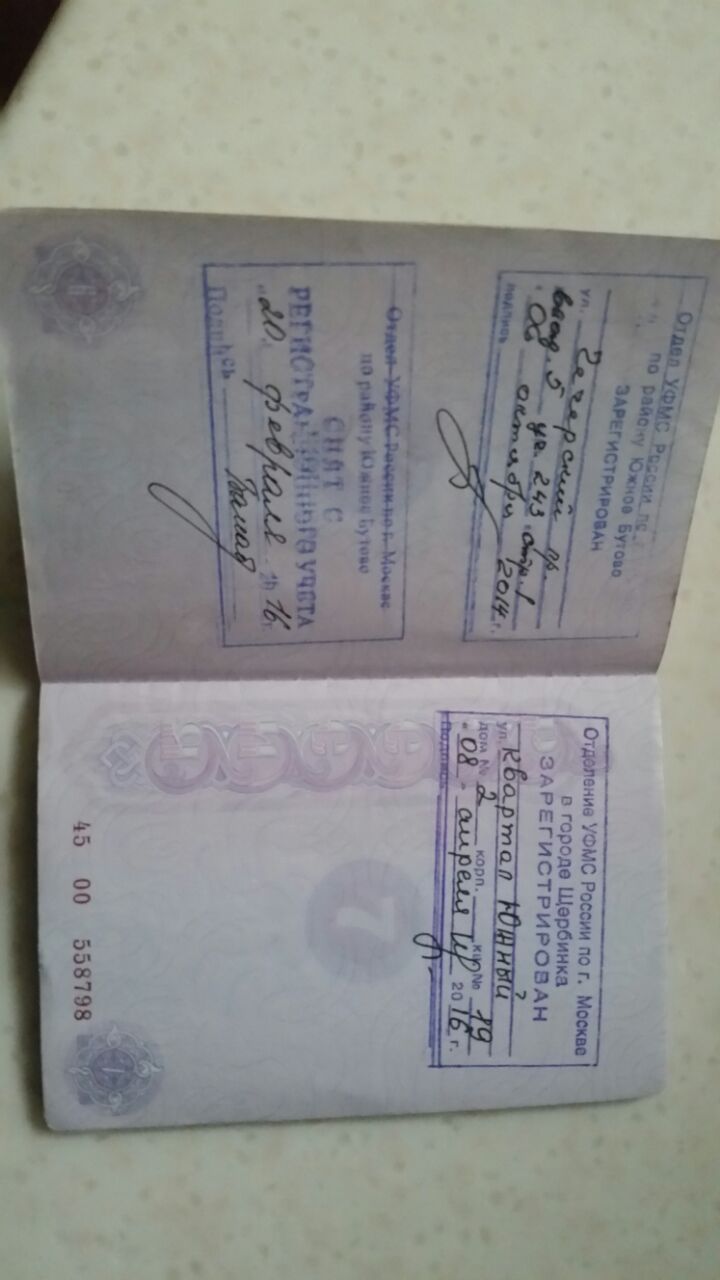 Отдел УФМС России по г.
по району Южное Бутово
ЗАРЕГИСТРИРОВАН
ул. Чечерский пр.
д. 5 уч. 243 стр. 1
08 октября 2014 г.
подпись
Отдел УФМС России по г. Москве
по району Южное Бутово
СНЯТ С
РЕГИСТРАЦИОННОГО УЧЕТА
"20" февраля 2016 г.
Подпись
Отделение УФМС России по г. Москве
в городе Щербинка
ЗАРЕГИСТРИРОВАН
ул. Квартал Южный
дом № 2 корп. кв. № 19
"08" апреля 2016 г.
Подпись
7
45 00 558798